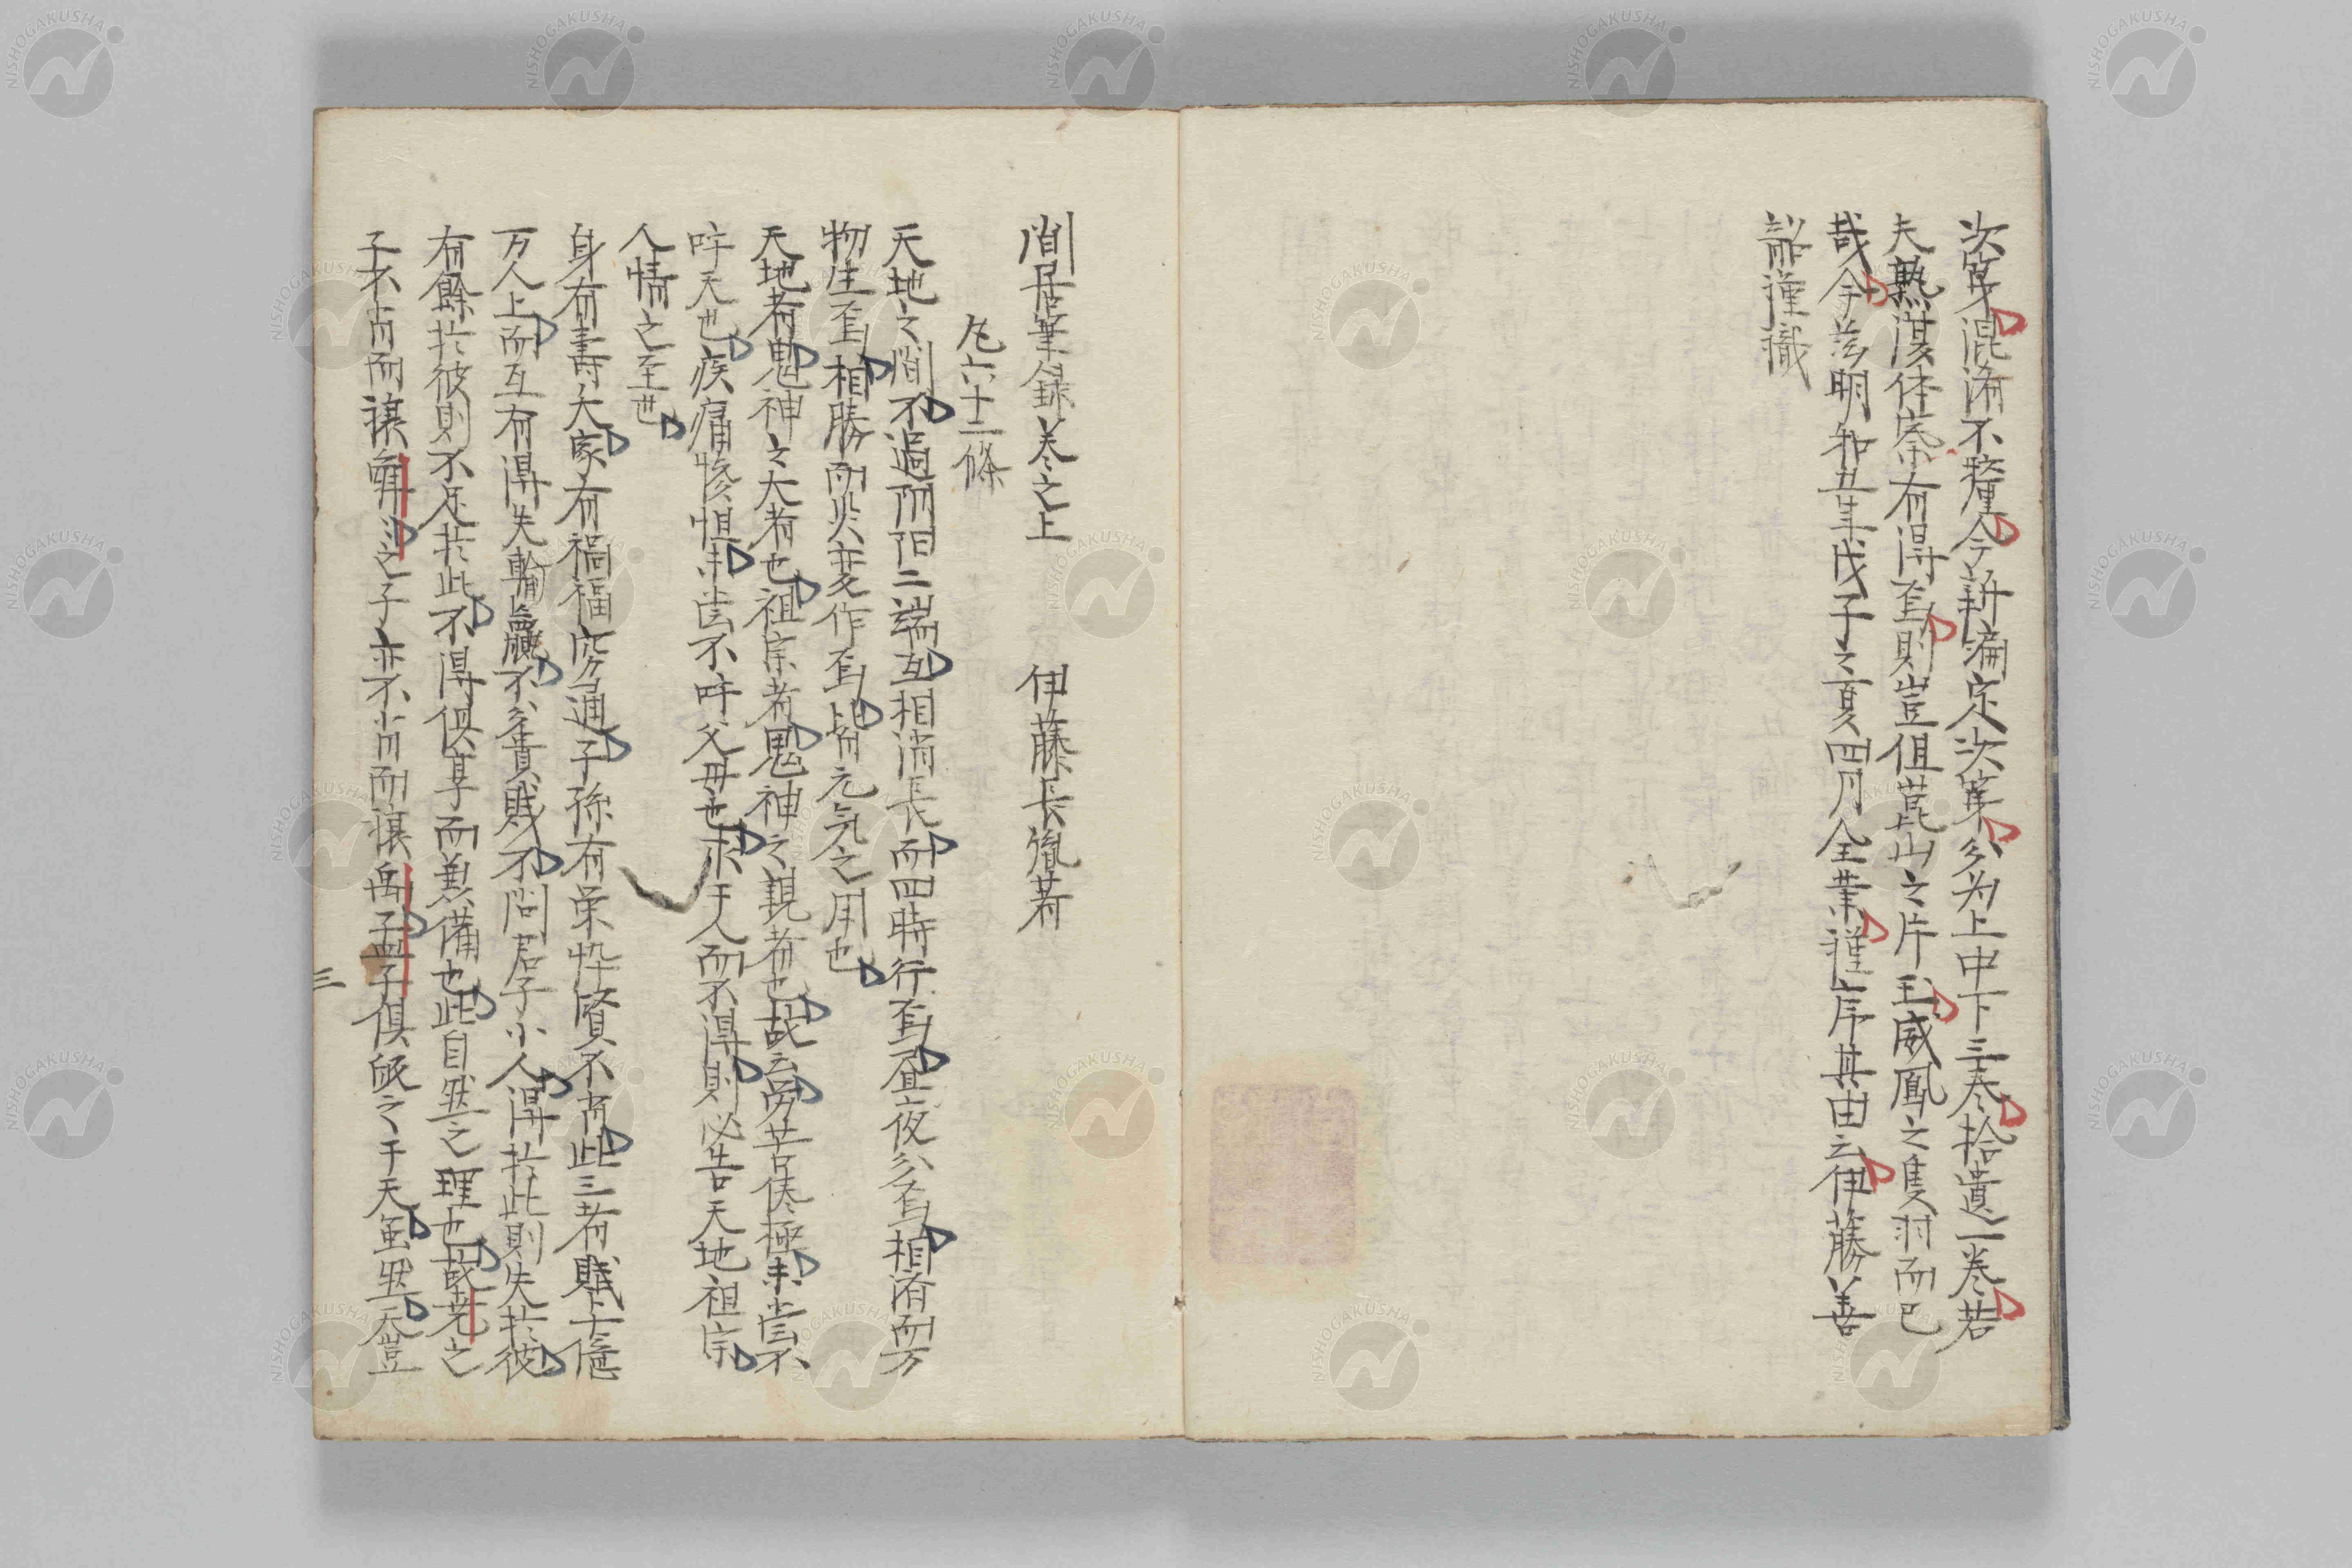 次第混淆不釐今新編定次第分为上中下三卷拾遺一卷若
夫熟湲体察有得焉則豈但崑山之片玉威鳳之隻羽而已
哉今茲明和五年戊子之夏四月全業謹序其由云伊藤善
韶謹識
閒居筆録卷之上　伊藤長胤著
凡六十二條
天地之間不過陰阳二端互相消長而四時行焉昼夜分焉相済而万
物生焉相勝而災変作焉皆元気之用也
天地者鬼神之大者也祖宗者鬼神之親者也故云労苦倦極未嘗不
呼天也疾痛惨怛未嘗不呼父母也求于人而不得則必告天地祖宗
人情之至也
身有壽夭家有禍福窮通子孫有榮悴賢不肖此三者賦於億
万人上而互有得失輸贏不分貴賎不問君子小人得於此則失於彼
有餘於彼則不足於此不得倶享而兼備也此自然之理也故尭之
子不肖而禅舜之子亦不肖而禅禹孟子倶皈之于天虽然天豈
三
NISHOGAKUSHA